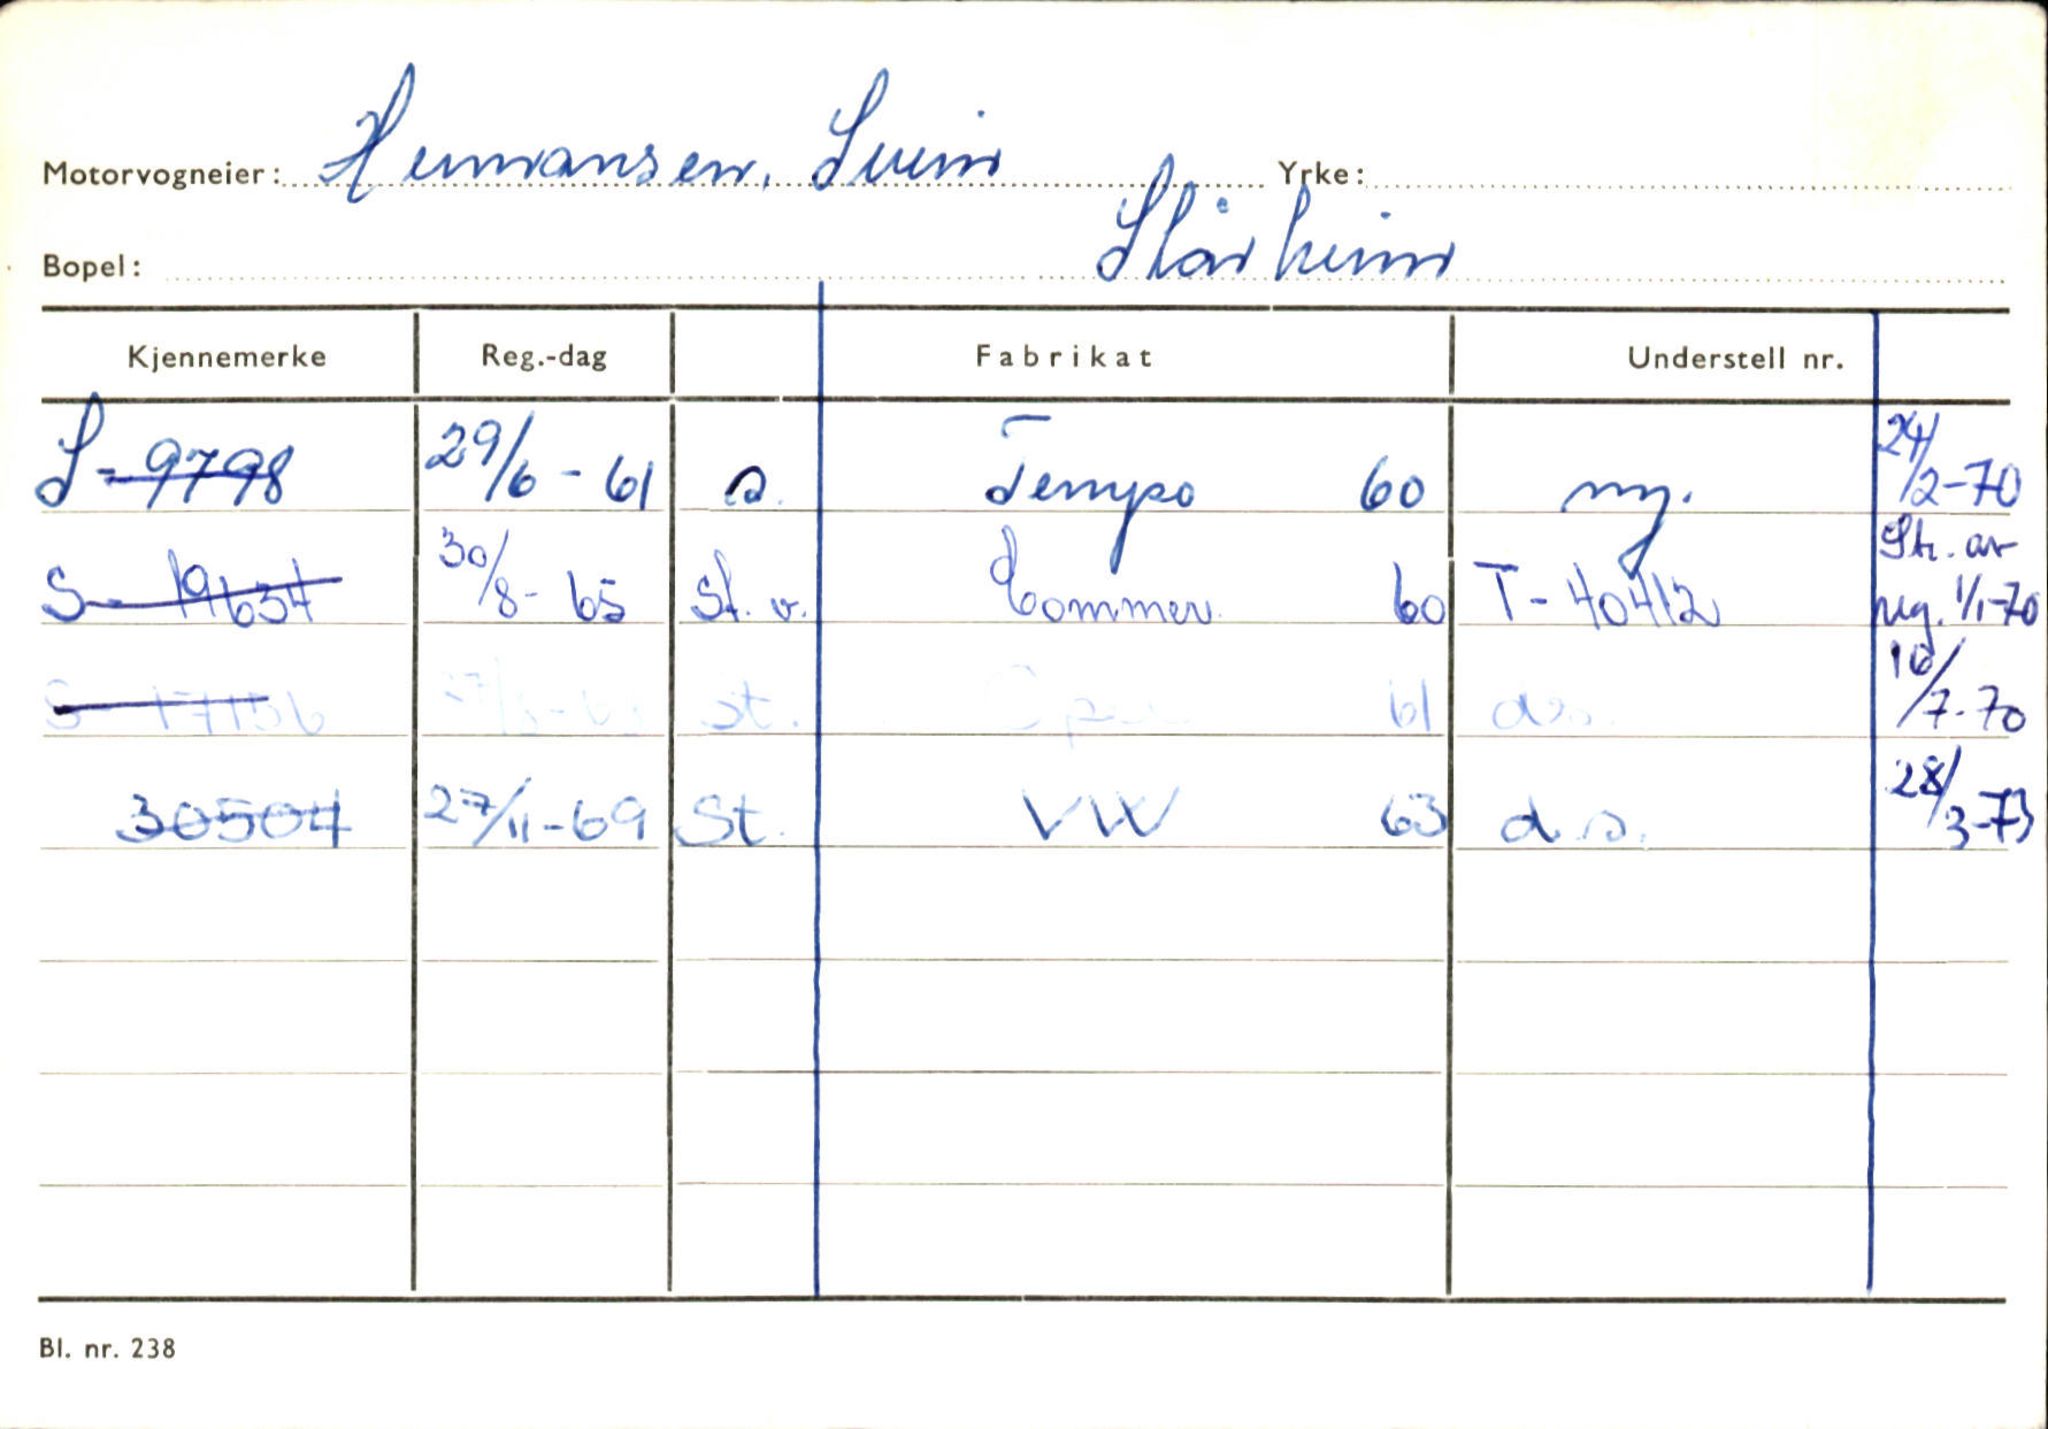 Motorvogneier: Hermansen, Svein Yrke:
Bopel: Stårheim
Kjennemerke Reg.-dag Fabrikat Understell nr.
S-9798 29/6-61 s. Tempo 60 ny. 24/2-70
S-19634 30/8-65 st. v. Commer. 60 T-40412 Str. av reg. 1/1-70
S-17156 st. Opel 61 ds. 16/7-70
30504 27/11-69 St. VW 63 d.s. 28/3-73
Bl. nr. 238